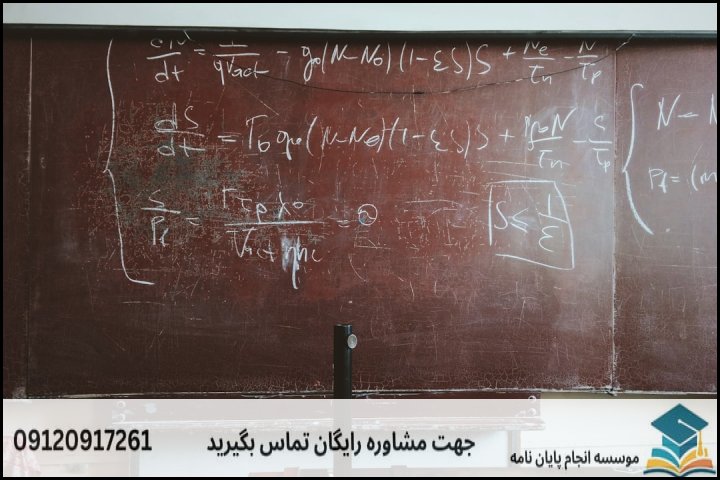 dN/dt = I/qVact − g₀(N−N₀)(1−εS)S + Ne/τn − N/τp
dS/dt = Γg₀(N−N₀)(1−εS)S + N/τn − S/τp
S/Pf = Γτpλ₀/Vactηhc =
S ≤ 1/ε
N −
Pf = (m
09120917261
جهت مشاوره رایگان تماس بگیرید
موسسه انجام پایان نامه